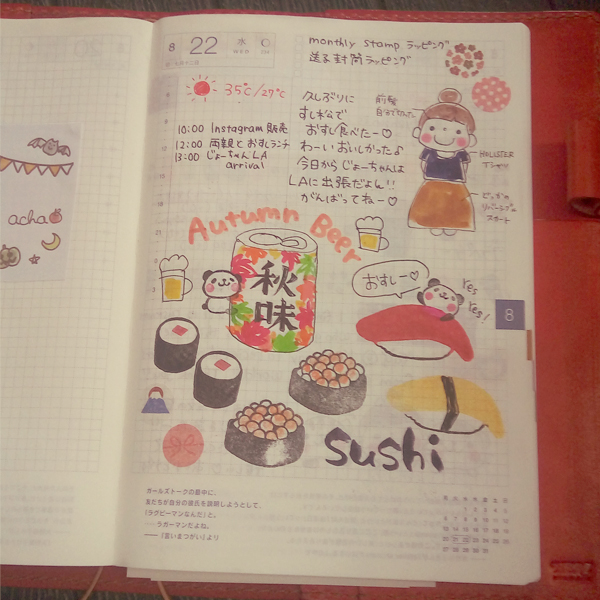 8
22
水
monthly stamp ラッピング
送る封筒ラッピング
35℃/27℃
10:00 Instagram 販売
12:00 両親とおすしランチ
13:00 じょーちゃんLA
arrival
久しぶりに
すし松で
おすし食べたー♡
わーい おいしかったよ♪
今日から じょーちゃんは
LAに出張だよん!!
がんばってねー♡
前髪
自分で切った
HOLLISTER
Tシャツ
スカート
acha
Autumn Beer
秋味
おすしー♡
yes
yes!
8
sushi
ガールズトークの最中に、
友だちが自分の彼氏を説明しようとして、
「ラグビーマンなんだ」と。
──ラガーマンだよね。
──『言いまつがい』より